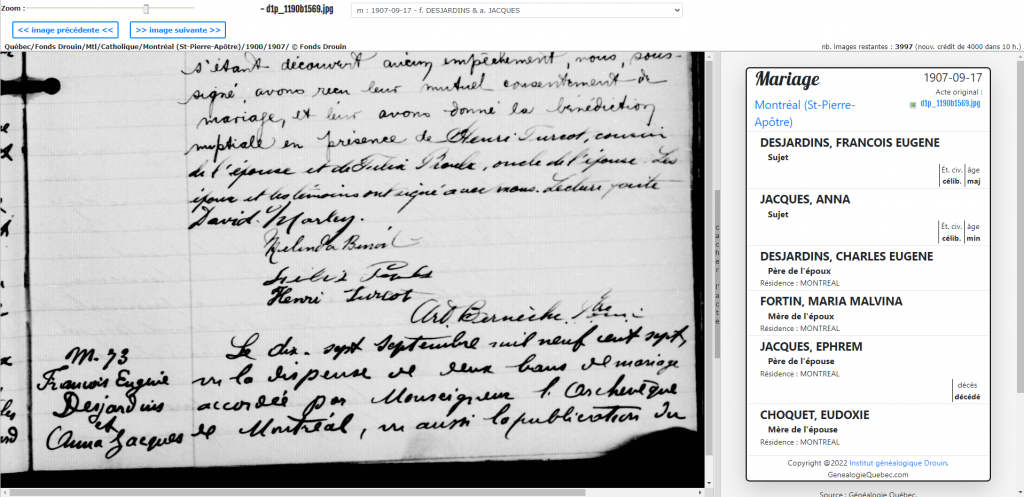 Zoom :
- d1p_1190b1569.jpg
m : 1907-09-17 - f. DESJARDINS & a. JACQUES
<< image précédente <<
>> image suivante >>
Québec/Fonds Drouin/Mtl/Catholique/Montréal (St-Pierre-Apôtre)/1900/1907/ © Fonds Drouin
nb. images restantes : 3997 (nouv. crédit de 4000 dans 10 h.)
s'étant découvert aucun empêchement, nous, sous-
signé, avons reçu leur mutuel consentement de
mariage, et leur avons donné la bénédiction
nuptiale en présence de Henri Turcot, cousin
de l'épouse et de Félix Proulx, oncle de l'épouse. Les
époux et les témoins ont signé avec nous. Lecture faite
David Marley.
Melinda Benoit
Henri Turcot
Art. Bernèche
M. 73
François Eugène
Desjardins
et
Anna Jacques
Le dix-sept septembre mil neuf cent sept,
vu la dispense de deux bans de mariage
accordée par Monseigneur l'Archevêque
de Montréal, vu aussi la publication du
cacher l'acte
Mariage
1907-09-17
Acte original :
d1p_1190b1569.jpg
Montréal (St-Pierre-
Apôtre)
DESJARDINS, FRANCOIS EUGENE
Sujet
Ét. civ. âge
célib. maj
JACQUES, ANNA
Sujet
Ét. civ. âge
célib. min
DESJARDINS, CHARLES EUGENE
Père de l'époux
Résidence : MONTREAL
FORTIN, MARIA MALVINA
Mère de l'époux
Résidence : MONTREAL
JACQUES, EPHREM
Père de l'épouse
Résidence : MONTREAL
décès
décédé
CHOQUET, EUDOXIE
Mère de l'épouse
Résidence : MONTREAL
Copyright @2022 Institut généalogique Drouin.
GenealogieQuebec.com
Source : Généalogie Québec.